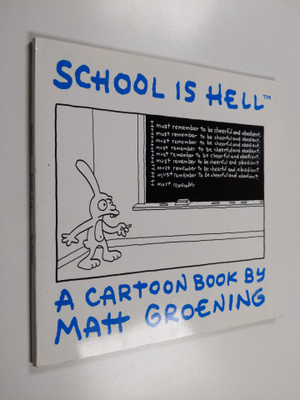 SCHOOL IS HELL™
I must remember to be cheerful and obedient.
I must remember to be cheerful and obedient.
I must remember to be cheerful and obedient.
I must remember to be cheerful and obedient.
I must remember to be cheerful and obedient.
I must remember to be cheerful and obedient.
I must remember to be cheerful and obedient.
I must remember to be cheerful and obedient.
I must rememb
A CARTOON BOOK BY
MATT GROENING